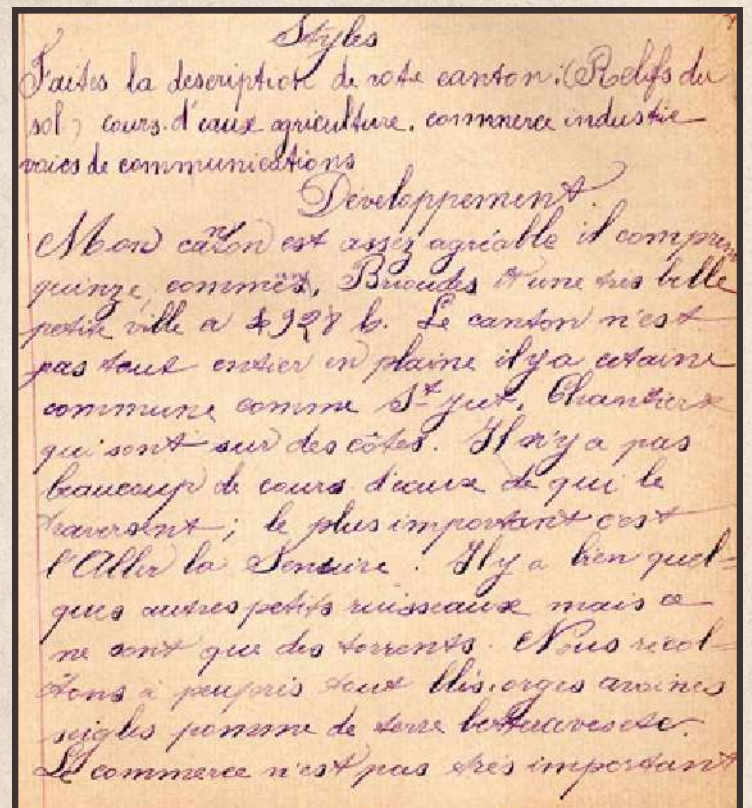 Styles
Faites la description de votre canton : (Reliefs du
sol) cours d'eaux agriculture. commerce industrie
voies de communications
Développement.
Mon canton est assez agréable il compren
quinze communes, Brioudes et une très belle
petite ville a 4928 h. Le canton n'est
pas tout entier en plaine il y a cetaine
commune comme St Just, Chaniers
qui sont sur des côtes. Il n'y a pas
beaucoup de cours d'eaux de qui le
traversent ; le plus important c'est
l'Allier la Senuire. Il y a bien quel-
ques autres petits ruisseaux mais ce
ne sont que des torrents. Nous récol-
tons à peu près tout blés. orges avoines
seigles pomme de terre betteraves etc.
Le commerce n'est pas très important